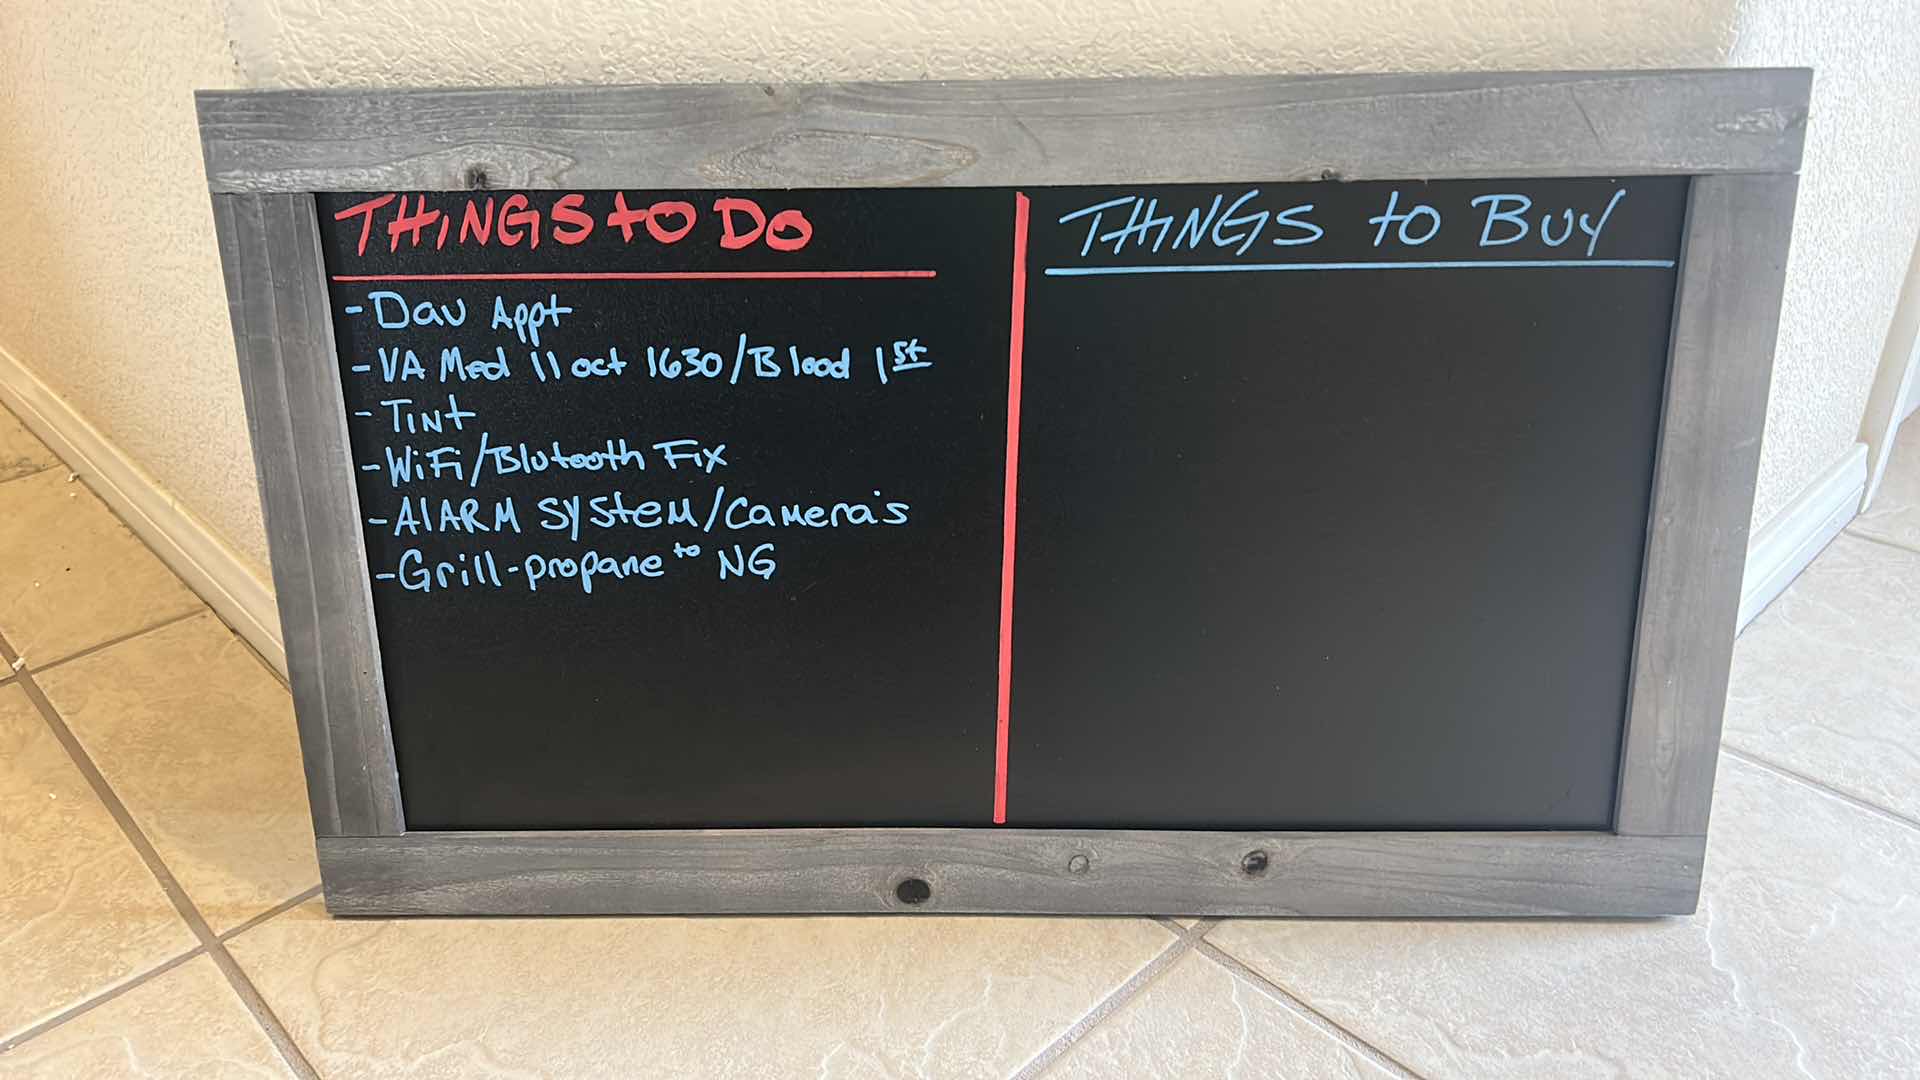 THiNGS to DO
- Dav Appt
- VA Med 11 oct 1630/Blood 1st
- TiNt
- WiFi/Blutooth Fix
- AlARM SyStem/Camera's
- Grill-propane to NG
THiNGS to Buy